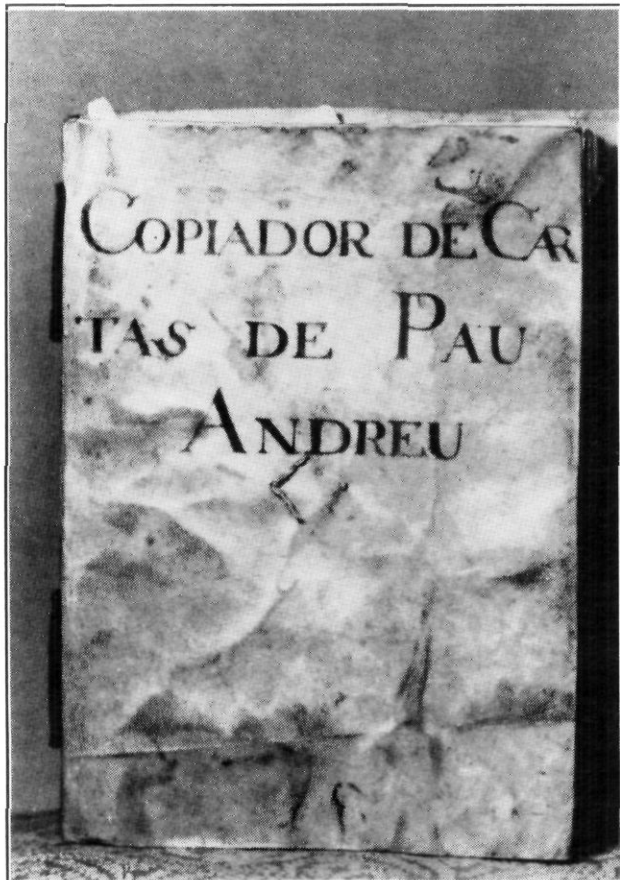 COPIADOR DE CAR
TAS DE PAU
ANDREU